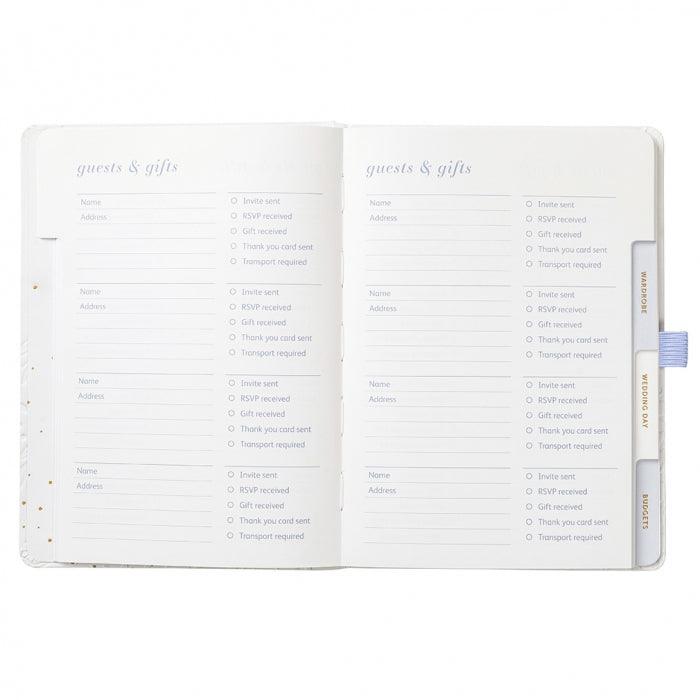 guests & gifts
Name
Address
Invite sent
RSVP received
Gift received
Thank you card sent
Transport required
Name
Address
Invite sent
RSVP received
Gift received
Thank you card sent
Transport required
Name
Address
Invite sent
RSVP received
Gift received
Thank you card sent
Transport required
Name
Address
Invite sent
RSVP received
Gift received
Thank you card sent
Transport required
guests & gifts
Name
Address
Invite sent
RSVP received
Gift received
Thank you card sent
Transport required
Name
Address
Invite sent
RSVP received
Gift received
Thank you card sent
Transport required
Name
Address
Invite sent
RSVP received
Gift received
Thank you card sent
Transport required
Name
Address
Invite sent
RSVP received
Gift received
Thank you card sent
Transport required
WARDROBE
WEDDING DAY
BUDGETS